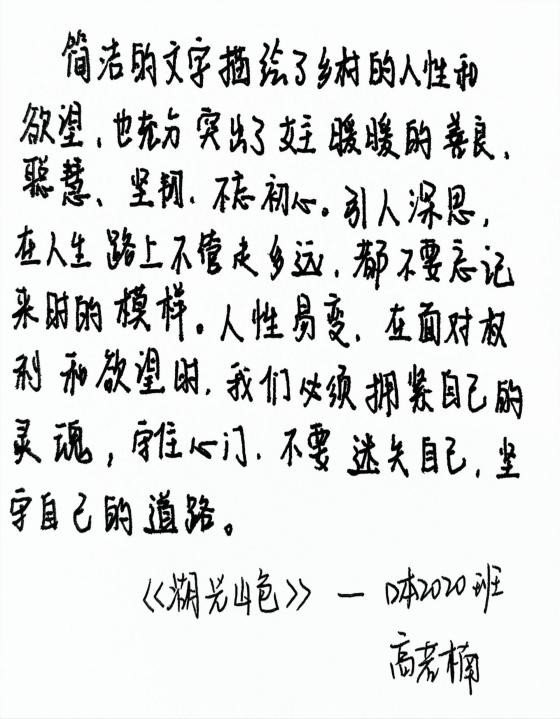 简洁的文字描绘了乡村的人性和
欲望,也充分突出了女主暖暖的善良、
聪慧、坚韧、不忘初心。引人深思,
在人生路上不管走多远,都不要忘记
来时的模样。人性易变,在面对权
利和欲望时,我们必须拥紧自己的
灵魂,守住心门,不要迷失自己,坚
守自己的道路。
《湖光山色》— 口本2020班
高若楠